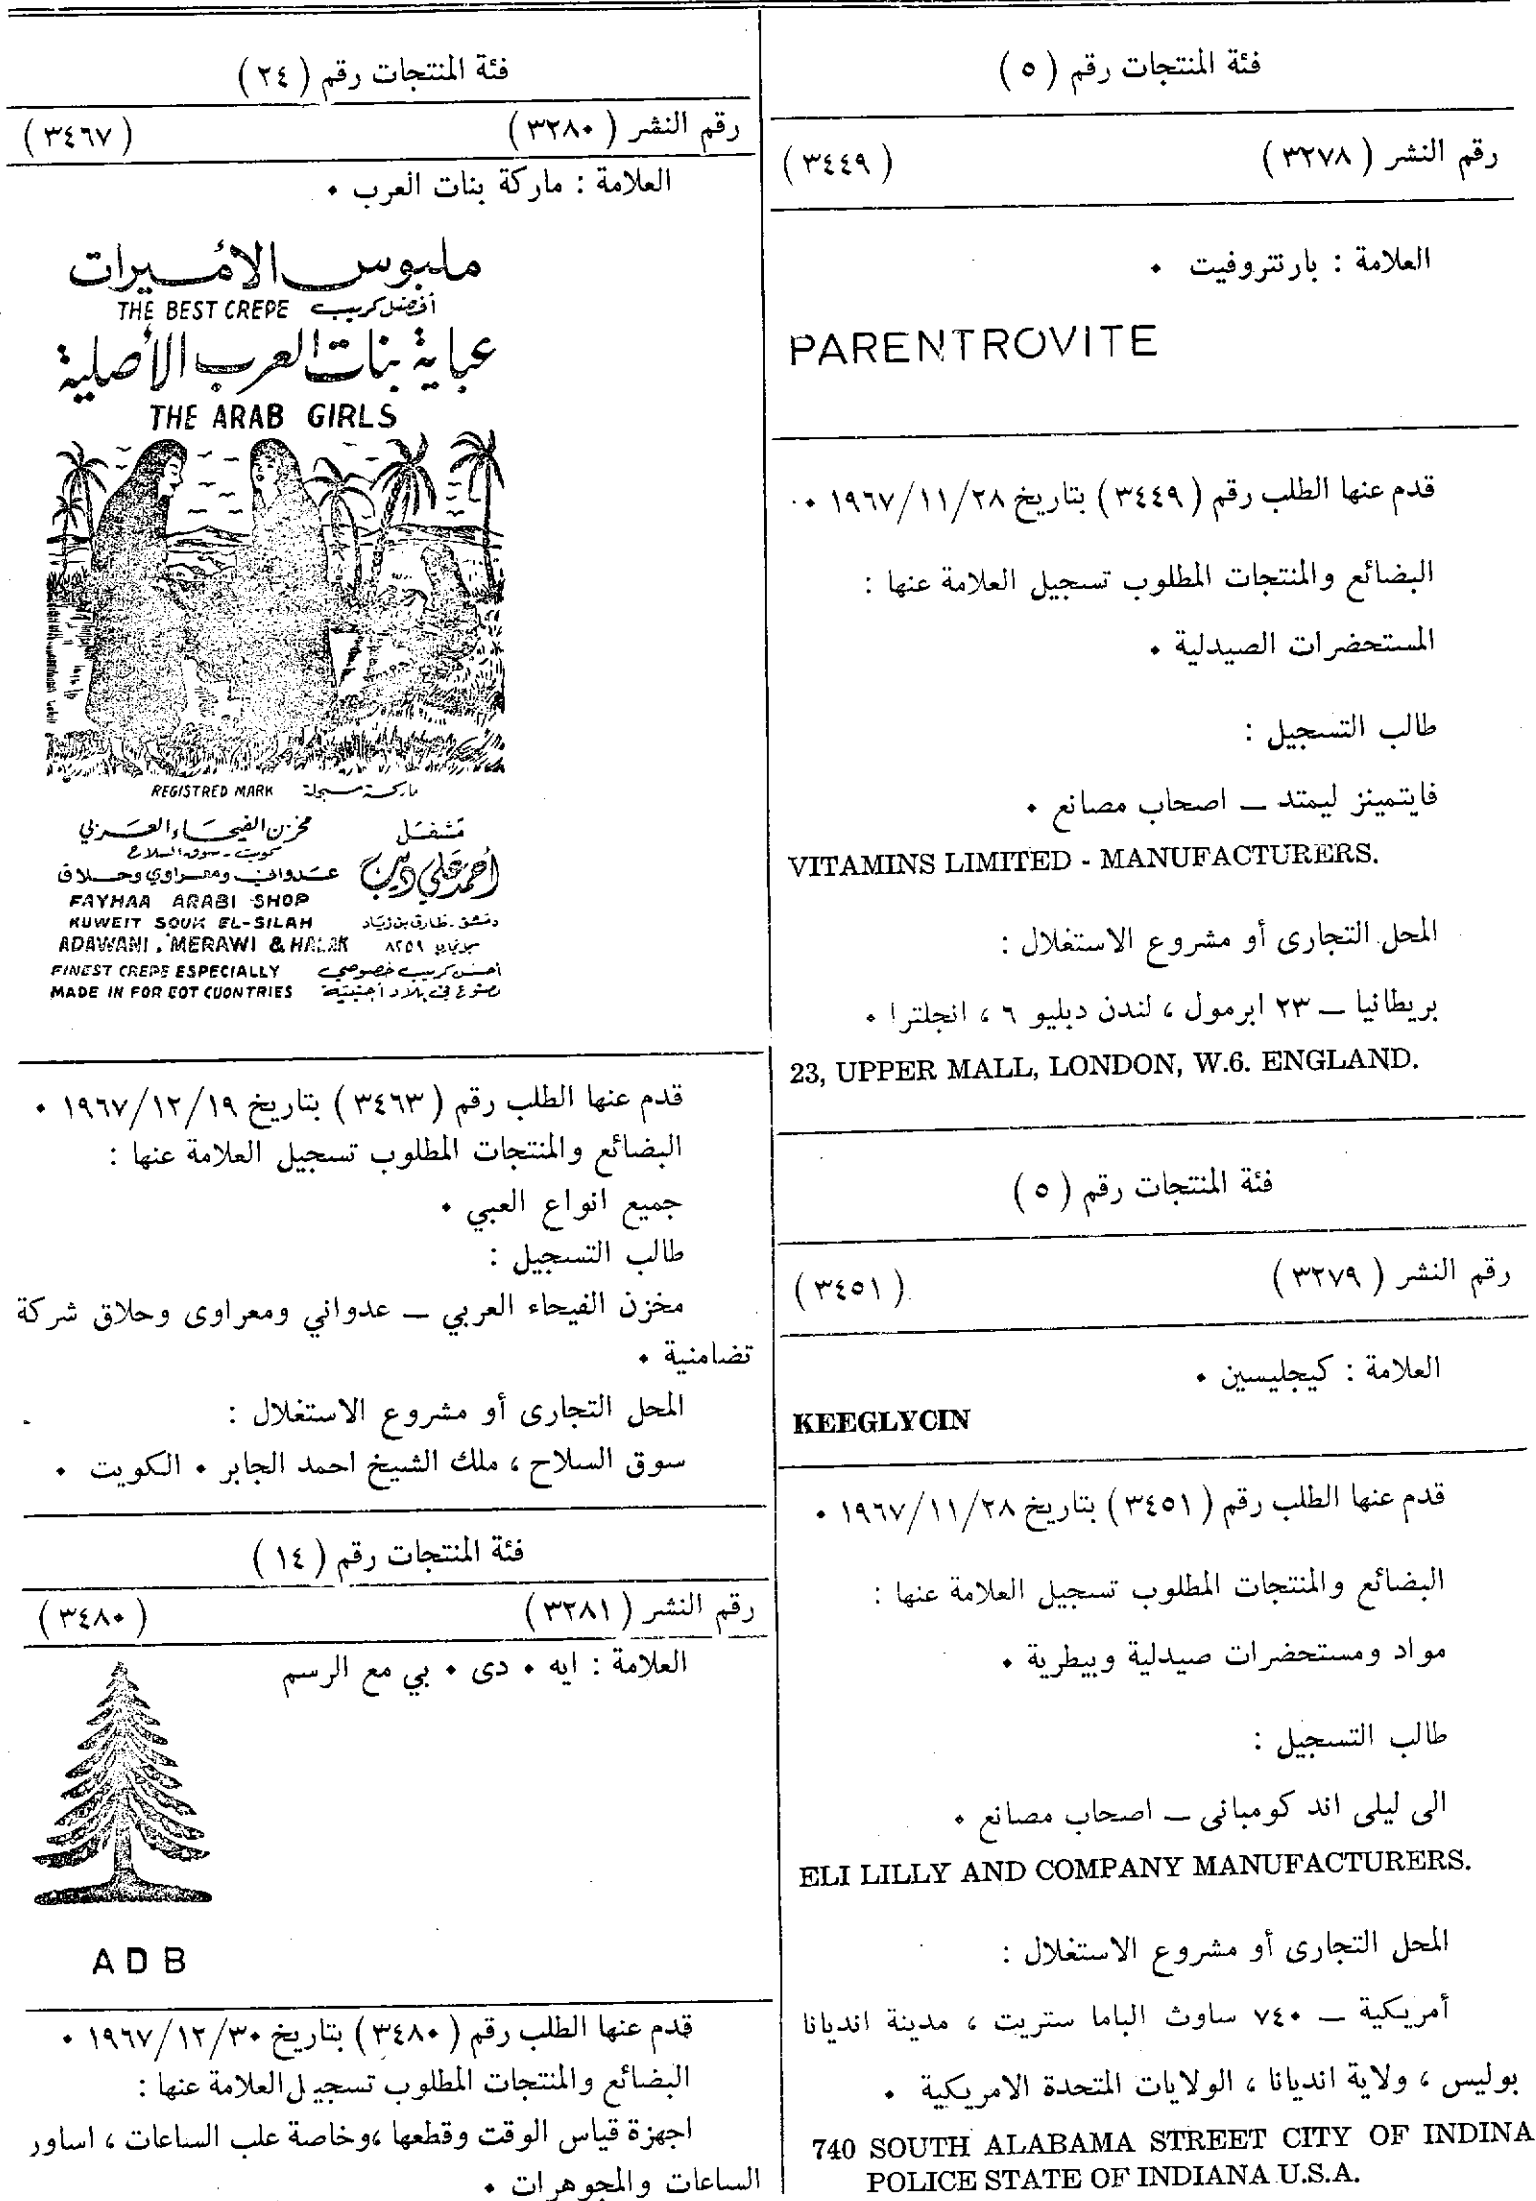 فئة المنتجات رقم ( ٥ )
رقم النشر ( ٣٢٧٨ ) ( ٣٤٤٩ )
العلامة : بارنتروفيت ٠
PARENTROVITE
قدم عنها الطلب رقم ( ٣٤٤٩ ) بتاريخ ١٩٦٧/١١/٢٨ ٠٠
البضائع والمنتجات المطلوب تسجيل العلامة عنها :
المستحضرات الصيدلية ٠
طالب التسجيل :
فايتمينز ليمتد ــ اصحاب مصانع ٠
VITAMINS LIMITED - MANUFACTURERS.
المحل التجارى أو مشروع الاستغلال :
بريطانيا ــ ٢٣ ابرمول ، لندن دبليو ٦ ، انجلترا ٠
23, UPPER MALL, LONDON, W.6. ENGLAND.
فئة المنتجات رقم ( ٥ )
رقم النشر ( ٣٢٧٩ ) ( ٣٤٥١ )
العلامة : كيجليسين ٠
KEEGLYCIN
قدم عنها الطلب رقم ( ٣٤٥١ ) بتاريخ ١٩٦٧/١١/٢٨ ٠
البضائع والمنتجات المطلوب تسجيل العلامة عنها :
مواد ومستحضرات صيدلية وبيطرية ٠
طالب التسجيل :
الى ليلى اند كومبانى ــ اصحاب مصانع ٠
ELI LILLY AND COMPANY MANUFACTURERS.
المحل التجارى أو مشروع الاستغلال :
أمريكية ــ ٧٤٠ ساوث الباما ستريت ، مدينة انديانا
بوليس ، ولاية انديانا ، الولايات المتحدة الامريكية ٠
740 SOUTH ALABAMA STREET CITY OF INDINA
POLICE STATE OF INDIANA U.S.A.
فئة المنتجات رقم ( ٢٤ )
رقم النشر ( ٣٢٨٠ ) ( ٣٤٦٧ )
العلامة : ماركة بنات العرب ٠
ملبوس الأميرات
أفضل كريب THE BEST CREPE
عباية بنات العرب الأصلية
THE ARAB GIRLS
ماركة مسجلة REGISTRED MARK
مشغل
أحمد علي ديب
دمشق - طارق بن زياد
٨٢٥٩
أحسن كريب خصوصي
مصنوع في بلاد أجنبية
مخزن الفيحاء العربي
كويت - سوق السلاح
عدواني ومعراوي وحلاق
FAYHAA ARABI SHOP
KUWEIT SOUK EL-SILAH
ADAWANI, MERAWI & HALAK
FINEST CREPE ESPECIALLY
MADE IN FOR EOT CUONTRIES
قدم عنها الطلب رقم ( ٣٤٦٣ ) بتاريخ ١٩٦٧/١٢/١٩ ٠
البضائع والمنتجات المطلوب تسجيل العلامة عنها :
جميع انواع العبي ٠
طالب التسجيل :
مخزن الفيحاء العربي ــ عدواني ومعراوى وحلاق شركة
تضامنية ٠
المحل التجارى أو مشروع الاستغلال :
سوق السلاح ، ملك الشيخ احمد الجابر ٠ الكويت ٠
فئة المنتجات رقم ( ١٤ )
رقم النشر ( ٣٢٨١ ) ( ٣٤٨٠ )
العلامة : ايه ٠ دى ٠ بي مع الرسم
A D B
قدم عنها الطلب رقم ( ٣٤٨٠ ) بتاريخ ١٩٦٧/١٢/٣٠ ٠
البضائع والمنتجات المطلوب تسجيل العلامة عنها :
اجهزة قياس الوقت وقطعها ،وخاصة علب الساعات ، اساور
الساعات والمجوهرات ٠